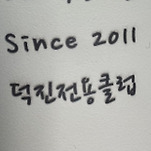 Since 2011
덕진전용클럽